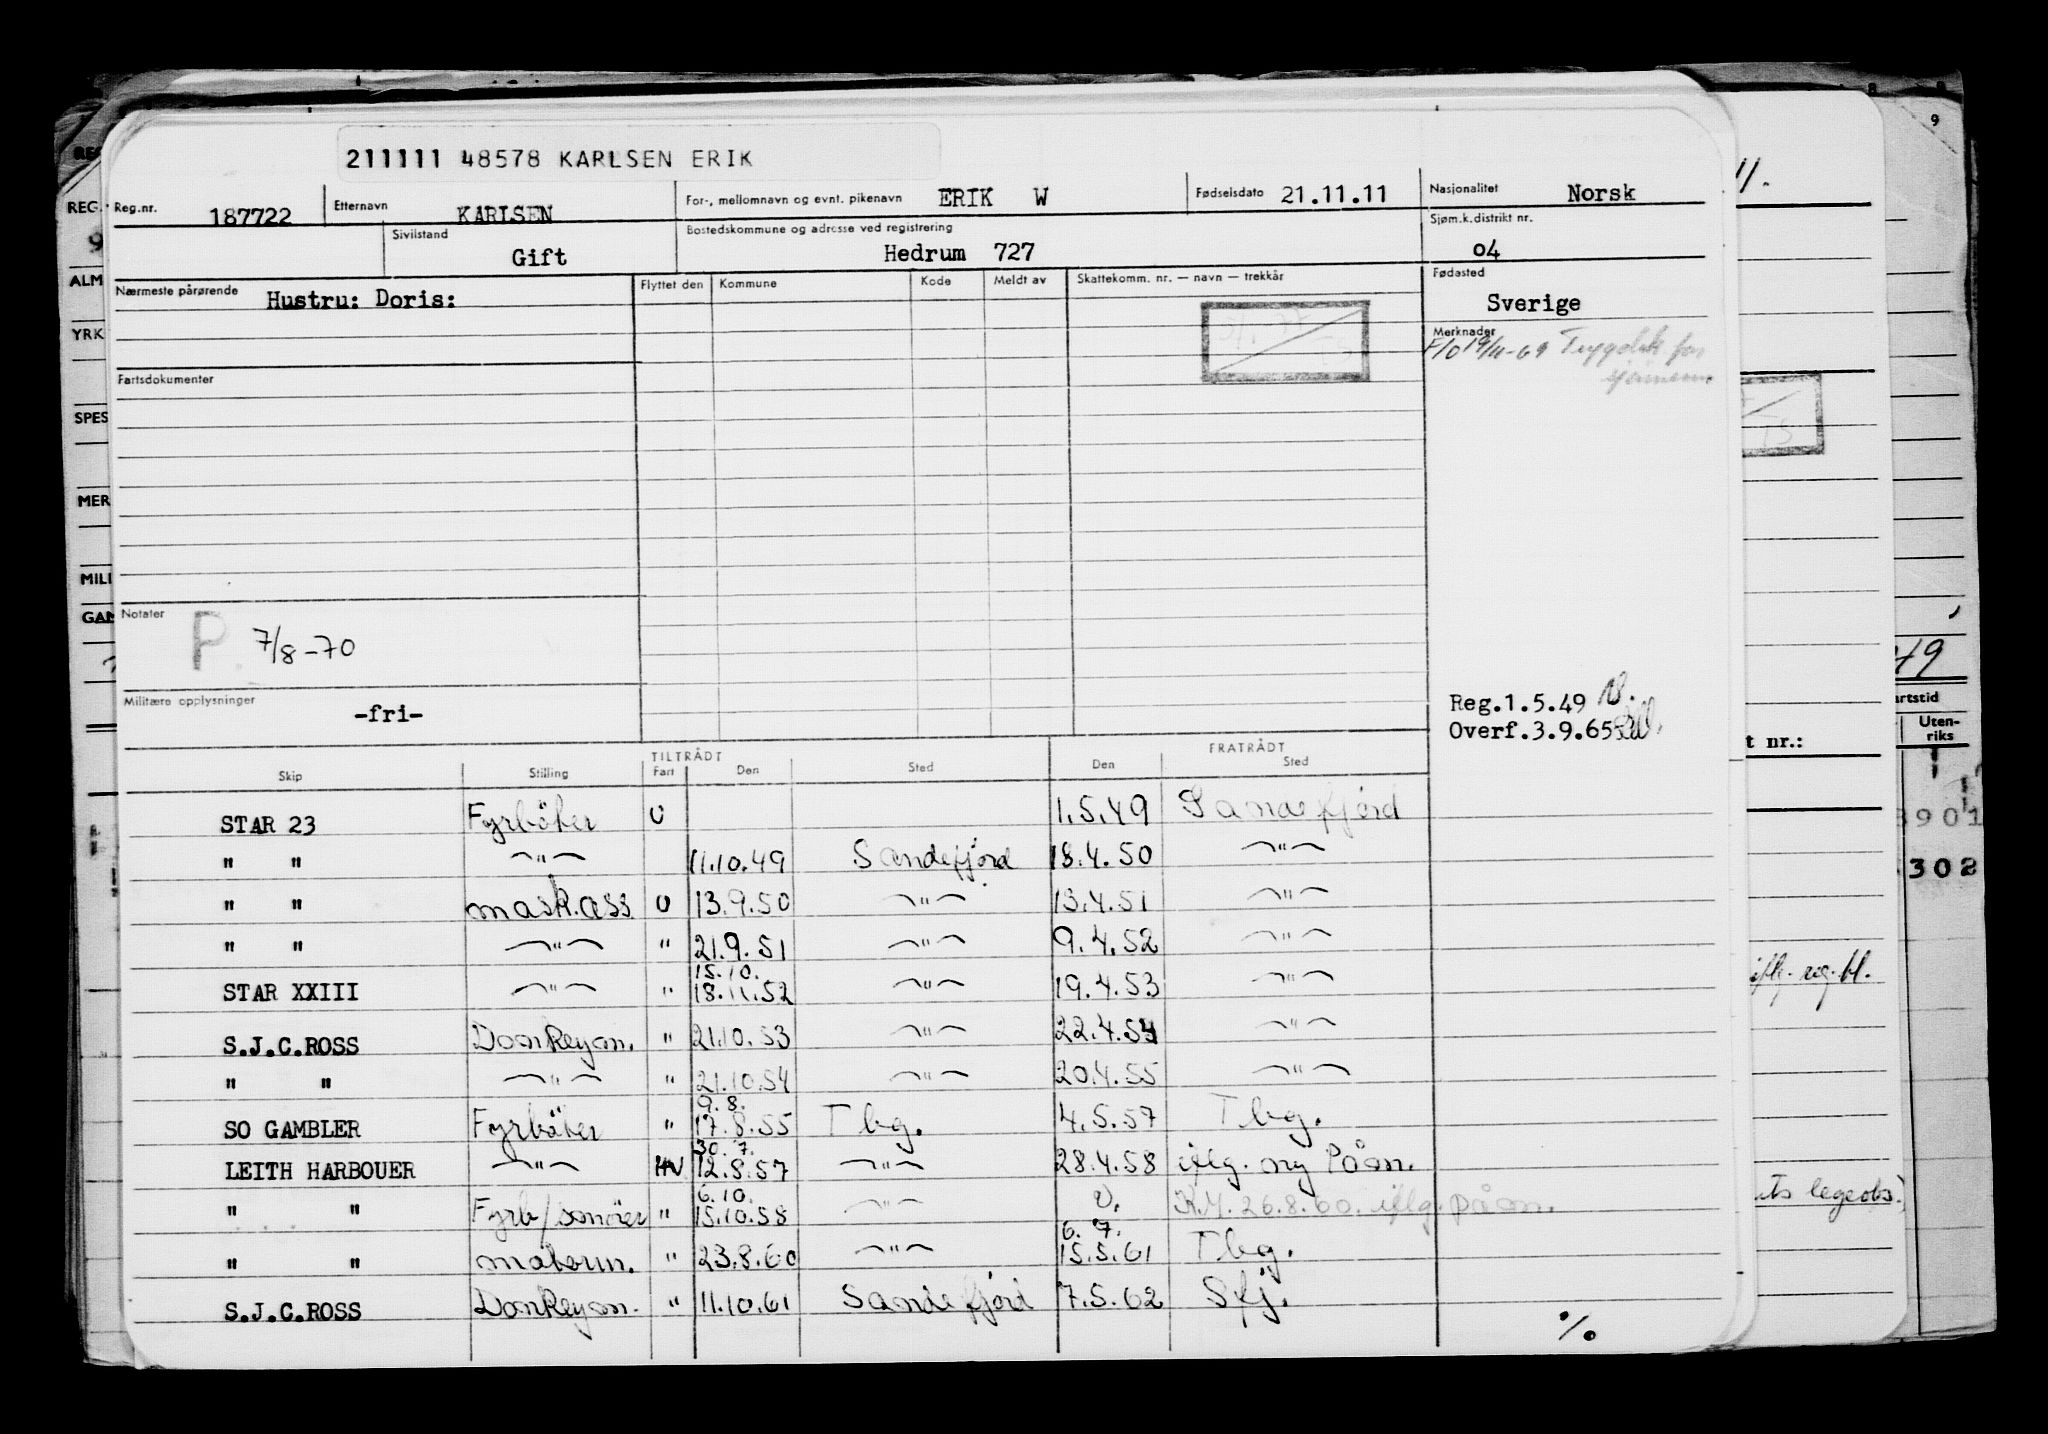 211111 48578 KARLSEN ERIK
Reg.nr. 187722 Etternavn KARLSEN For-, mellomnavn og evnt. pikenavn ERIK W Fødselsdato 21.11.11 Nasjonalitet Norsk
Sivilstand Gift Bostedskommune og adresse ved registrering Hedrum 727 Sjøm.k.distrikt nr. 04
Nærmeste pårørende Hustru: Doris: Flyttet den Kommune Kode Meldt av Skattekomm. nr. — navn — trekkår Fødested
Sverige
Merknader
F/O 19/11-69
Fartsdokumenter
Notater P 7/8-70
Militære opplysninger -fri-
Reg.1.5.49
Overf.3.9.65
TILTRÅDT FRATRÅDT
Skip Stilling Fart Den Sted Den Sted
STAR 23 Fyrbøter U 1.5.49 Sandefjord
" " —"— 11.10.49 Sandefjord 18.4.50 —"—
" " mask.ass U 13.9.50 —"— 13.4.51 —"—
" " —"— " 21.9.51 —"— 9.4.52 —"—
15.10.
STAR XXIII —"— " 18.11.52 —"— 19.4.53 —"—
S.J.C.ROSS Donkeym. " 21.10.53 —"— 22.4.54 —"—
" " —"— " 21.10.54 —"— 20.4.55 —"—
9.8.
SO GAMBLER Fyrbøter " 17.8.55 Tbg. 4.5.57 Tbg.
30.7.
LEITH HARBOUER —"— HV 12.8.57 —"— 28.4.58 iflg. ny Påm.
6.10.
" " " 15.10.58 —"— U. K.M. 26.8.60. iflg. påm.
6.7.
" " matrum. " 23.8.60 —"— 15.5.61 Tbg.
S.J.C.ROSS Donkeym. " 11.10.61 Sandefjord 7.5.62 Sfj.
%
REG.
ALM
YRK
SPES
MER
MILI
GAN
9
11.
49
artstid
Uten-
riks
t nr.:
901
302
iflg. reg.bl.
legeobs.